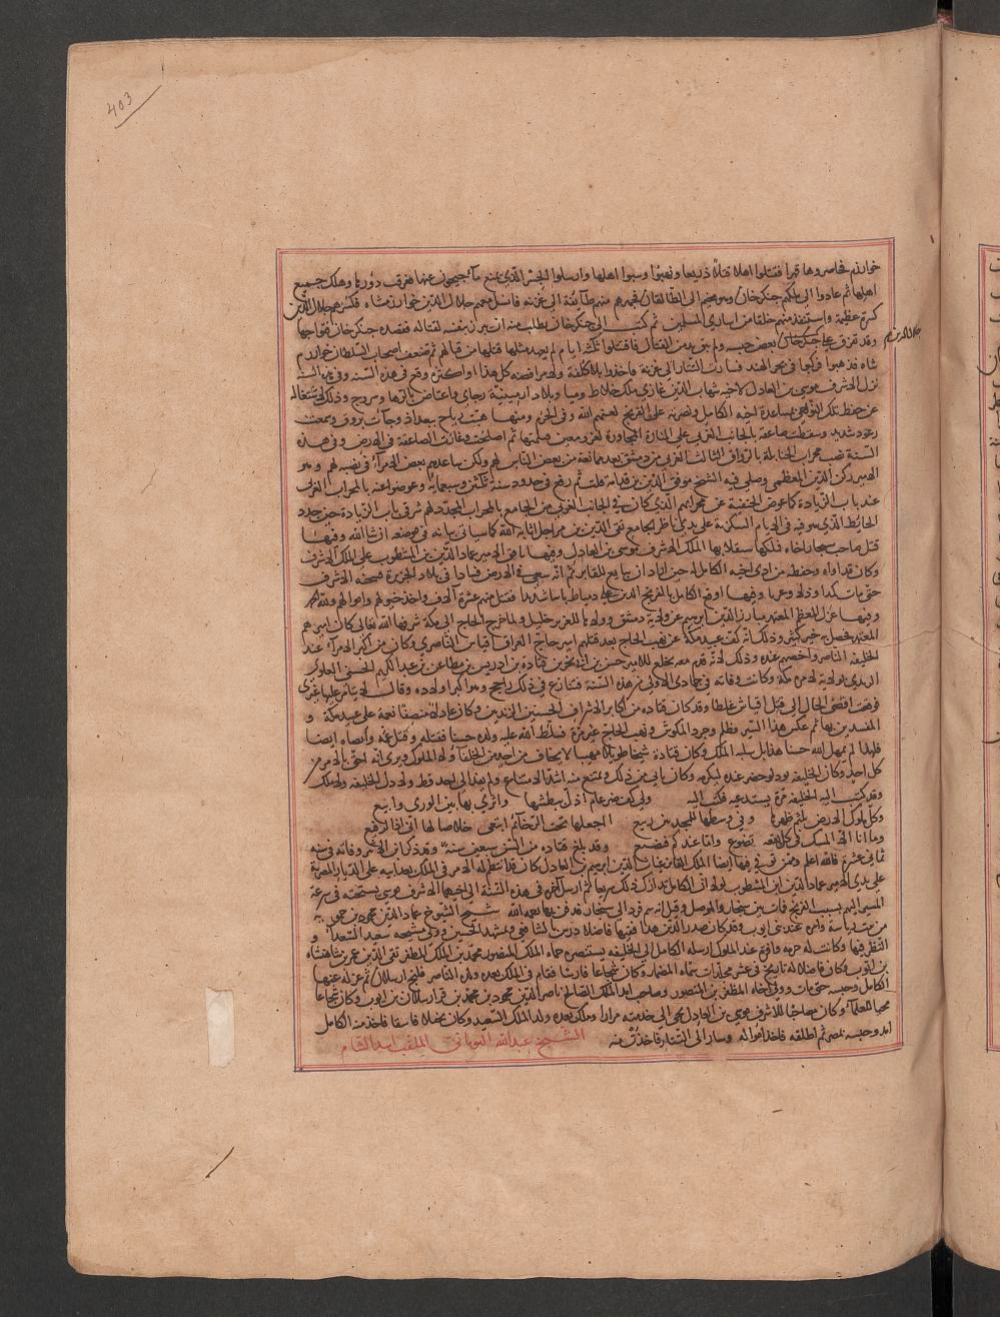 403
خوارزم فحاصروها قهرا فقتلوا اهلها قتلا ذريعا ونهبوا وسبوا اهلها وارسلوا الجسر الذى يمنع ماء جيحون عنها فغرقت دورها وهلك جميع
اهلها ثم عادوا الى ملكهم جنكزخان وهو مخيم الى الطالقان فجهز منهم طائفة الى غزنه فاقتتل معهم جلال الدين خوارزم شاه فكسرهم جلال الدين
كسرة عظيمة واستنقذ منهم خلقا من اسارى المسلمين ثم كتب الى جنكزخان يطلب منه ان يبرز بنفسه لقتاله فقصده جنكزخان فتواجها
وقد تفرق على جلال الدين بعض جيشه ولم يبق بد من القتال فاقتتلوا ثلثة ايام لم يعهد مثلها قبلها من قتالهم ثم ضعف اصحاب السلطان خوارزم
شاه فذهبوا فركبوا فى بحر الهند فسارت التتار الى غزنة فاخذوها بلا كلفة ولا ممانعة كل هذا او اكثره وقع فى هذه السنة وفى هذه السنة
نزل الاشرف موسى بن العادل لاخيه شهاب الدين غازى ملك خلاط وميا وبلاد ارمينية واعتاض بالرها وسروج وذلك لاشتغاله
عن حفظ تلك النواحى بمساعدة اخيه الكامل ونصرته على الفرنج لعنهم الله وفى المحرم منها هبت رياح ببغداد وجاءت بروق وسمعت
رعود شديدة وسقطت صاعقة بالجانب الغربى على المنارة المجاورة لعون ومعين فثلمتها ثم اصلحت وغارت الصاعقة فى الارض وفى هذه
السنة نصب محراب الحنابلة بالرواق الثالث الغربى من جامع دمشق بعد ممانعة من بعض الناس لهم ولكن ساعدهم بعض الامراء فى نصبه لهم وهو
الامير ركن الدين المعظمى وصلى فيه الشيخ موفق الدين بن قدامة قلت ثم رفع فى حدود سنة ثلثين وسبعمائة وعوضوا عنه بالمحراب الغربى
عند باب الزيادة كما عوض الحنفية عن محرابهم الذى كان فى الجانب الغربى من الجامع بالمحراب المجدد لهم شرقى باب الزيادة حين جدد
الحائط الذى هو فيه فى الايام التنكزية على يدى ناظر الجامع تقى الدين بن مراجل اثابه الله كما سياتى بيانه فى موضعه ان شاء الله وفيها
قتل صاحب سنجار اخاه فملكها مستقلا بها الملك الاشرف موسى بن العادل وفيها نافق الامير عماد الدين بن المشطوب على الملك الاشرف
وكان قد اواه وحفظه من اذى اخيه الكامل حين اراد ان يبايع للفائز ثم انه سعى فى الارض فسادا فى بلاد الجزيرة فسجنه الاشرف
حتى مات كمدا وذلا وعريا وفيها اوقع الكامل بالفرنج الذين على دمياط باسا شديدا فقتل منهم عشرة آلاف واخذ خيولهم واموالهم ولله الحمد
وفيها عزل المعظم المعتمد مبارز الدين ابرهيم عن ولاية دمشق وولاها للعزيز خليل ولما خرج الحاج الى مكة شرفها الله تعالى كان اميرهم
المعتمد فحصل به خير كثير وذلك انه كف عبيد مكة عن نهب الحاج بعد قتلهم امير حاج العراق اقباش الناصرى وكان من اكبر الامراء عند
الخليفة الناصر واخصهم عنده وذلك لانه قدم معه بخلع للامير حسن بن قتادة بن ادريس بن مطاعن بن عبد الكريم الحسنى العلوى
الزيدى بولاية لامر مكة وكانت وفاته فى جمادى الاولى من هذه السنة فتنازع فى ذلك راجح وهو اكبر اولاده وقال لا يتامر عليها غيرى
فوقعت افضى الحال الى قتل اقباش غلطا وقد كان قتادة من اكابر الاشراف الحسنيين الزيديين وكان عادلا منصفا نقمة على عبيد مكة و
المفسدين بها ثم عكس هذا السير فظلم وجدد المكوس ونهب الحاج غير مرة فسلط الله عليه ولده حسنا فقتله وقتل عمه واخاه ايضا
فلهذا لم يمهل الله حسنا هذا بل سلبه الملك وكان قتادة شيخا طويلا مهيبا لا يخاف من احد من الخلفاء ولا الملوك ويرى انه احق بالامر من
كل احد وكان الخليفة يود لو حضر عنده ليكرمه وكان يابى من ذلك ويمتنع منه اشد الامتناع ولم يفد الى احد قط ولا ذل لخليفة ولا ملك
وقد كتب اليه الخليفة مرة يستدعيه فكتب اليه ولى كف ضرغام اذل ببطشها واشرى بها بين الورى وابيع
وكل ملوك الارض يلثم ظهرها وفى وسطها للمجدبين ربيع اجعلها تحت الرحا ثم ابتغى خلاصا لها انى اذا لرقيع
وما انا الا المسك فى كل بقعة تضوع واما عندكم فتضيع وقد بلغ قتادة من السن سبعين سنة وقد ذكر ابن الاثير وفاته فى سنة
ثمانى عشرة فالله اعلم وممن توفى فيها ايضا الملك الفائز غياث الدين ابرهيم بن العادل كان قد انتظم له الامر فى الملك بعد ابيه على الديار المصرية
على يدى الامير عماد الدين ابن المشطوب لولا ان الكامل تدارك ذلك سريعا ثم ارسله اخوه فى هذه السنة الى اخيهما الاشرف موسى يستحثه فى سرعة
المسير اليهم بسبب الفرنج فمات بين سنجار والموصل وقيل انه سم فرد الى سنجار فدفن بها رحمه الله شيخ الشيوخ عماد الدين محمود بن حمويه
من بيت رياسة وامرة عند بنى ايوب وقد كان صدر الدين هذا فقيها فاضلا درس بالشافعى وبمشهد الحسين وولى مشيخة سعيد السعداء و
النظر فيها وكانت له حرمة وافرة عند الملوك ارسله الكامل الى الخليفة يستنصره حماه الملك المنصور محمد بن الملك المظفر تقى الدين عمر بن شاهنشاه
بن ايوب وكان فاضلا له تاريخ فى عشر مجلدات سماه المضمار وكان شجاعا فارسا فقام فى الملك بعده ولده الناصر قليج ارسلان ثم عزله عنها
الكامل وحبسه حتى مات وولى اخاه المظفر بن المنصور وصاحب امد الملك الصالح ناصر الدين محمود بن محمد بن قرا ارسلان بن ارتق وكان شجاعا
محبا للعلماء وكان مصاحبا للاشرف موسى بن العادل يجئ الى خدمته مرارا وملك بعده ولده الملك المسعود وكان بخيلا فاسقا فاخذ منه الكامل
امد وحبسه بمصر ثم اطلقه فاخذ امواله وسار الى التتار فاخذت منه الشيخ عبد الله اليونانى الملقب اسد الشام